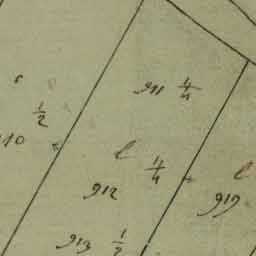 911 4/4
1/2
10
l 4/4
912
l
919
913 1/2